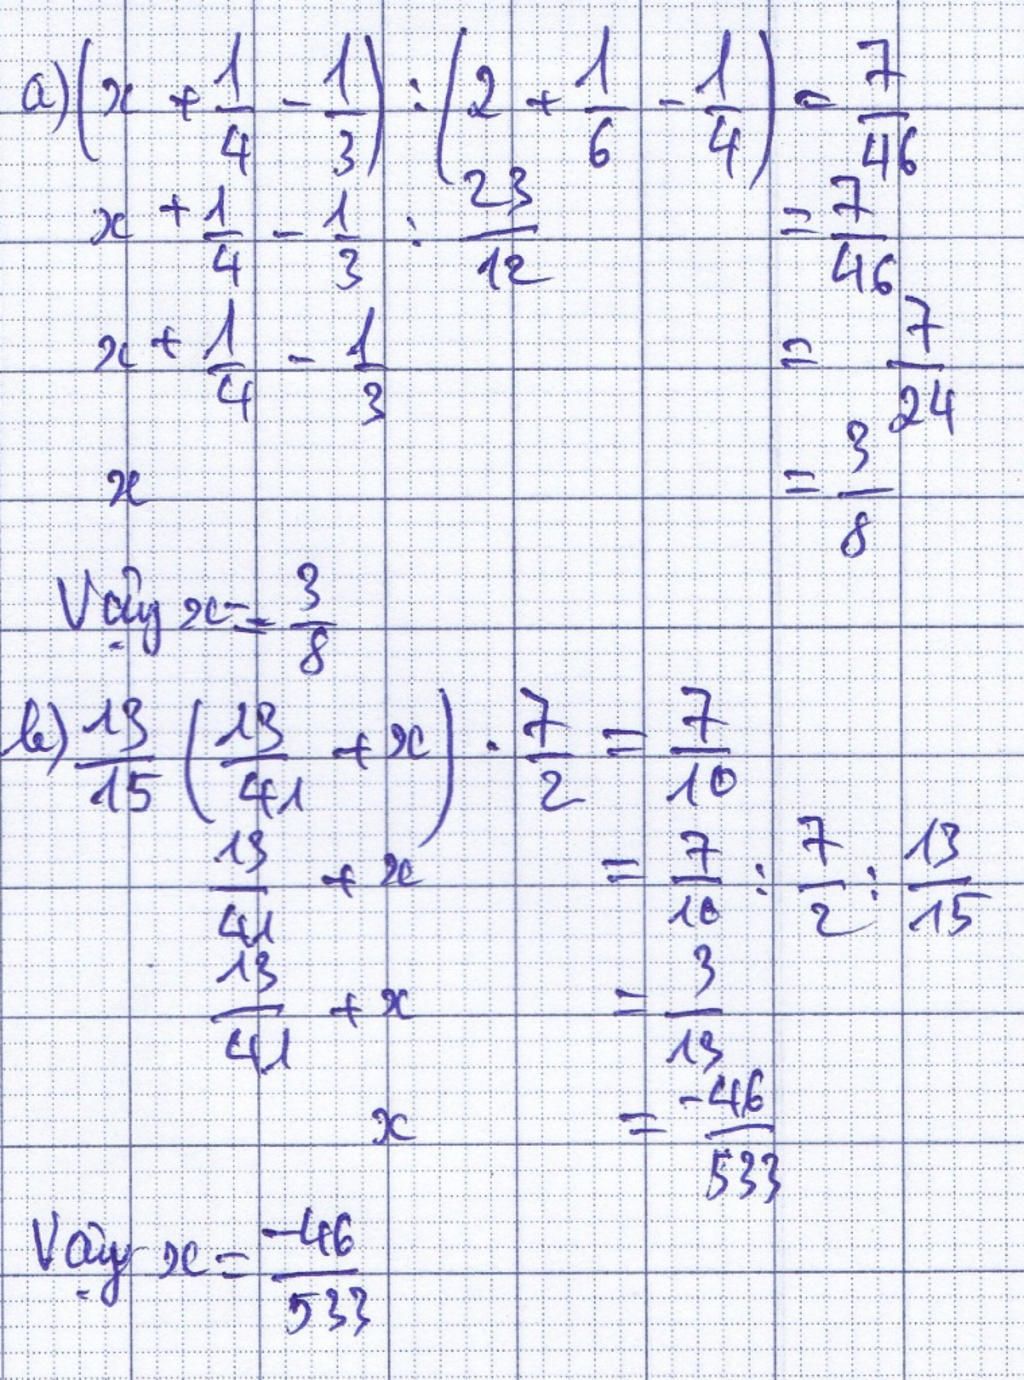 a) (x + 1/4 - 1/3) : (2 + 1/6 - 1/4) = 7/46
x + 1/4 - 1/3 : 23/12 = 7/46
x + 1/4 - 1/3 = 7/24
x = 3/8
Vậy x = 3/8
b) 13/15 (13/41 + x) . 7/2 = 7/10
13/41 + x = 7/10 : 7/2 : 13/15
13/41 + x = 3/13
x = -46/533
Vậy x = -46/533